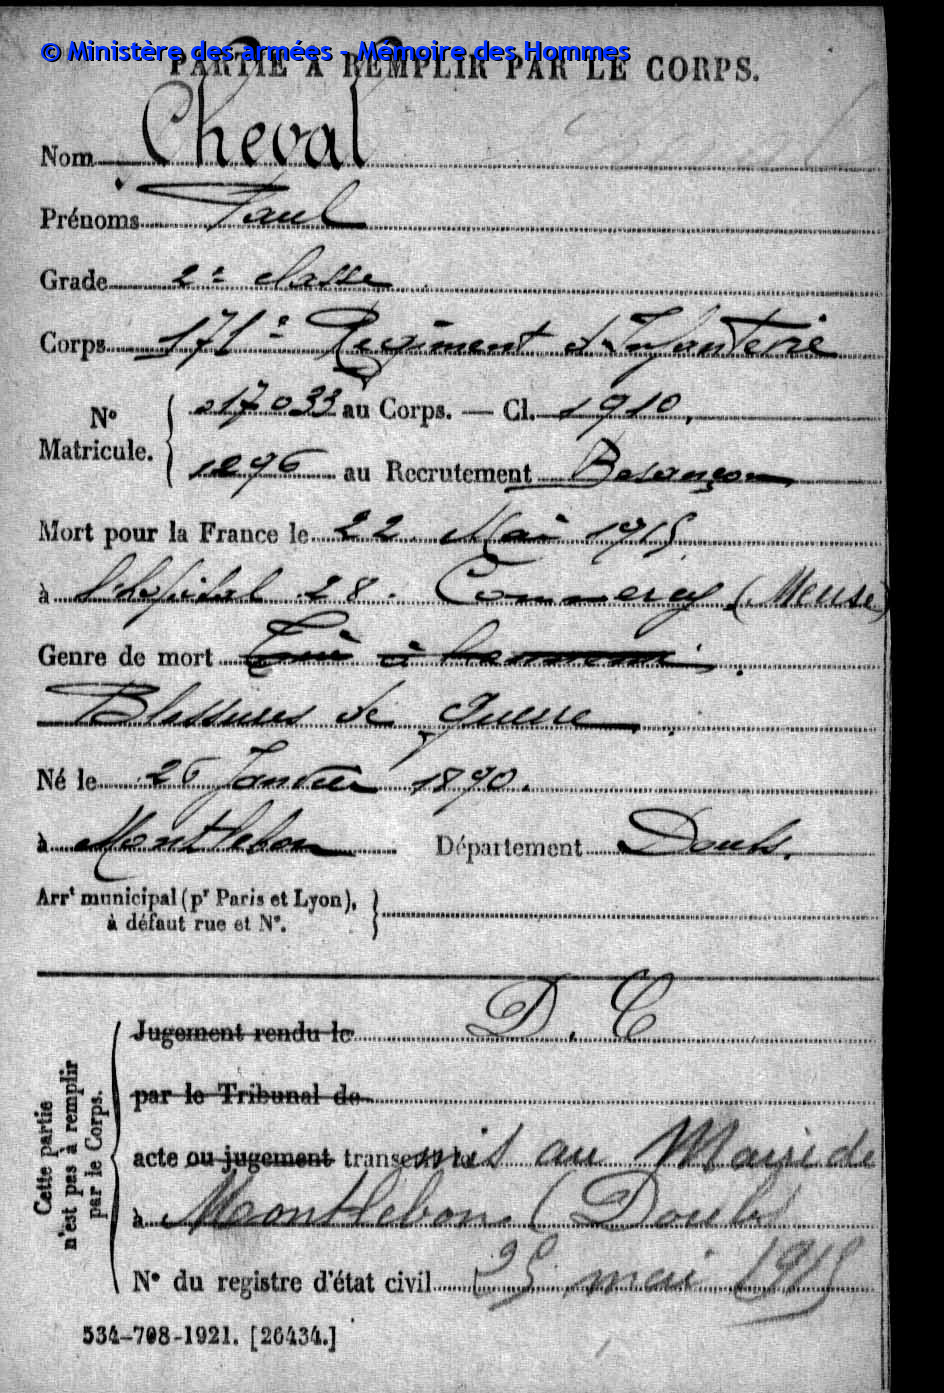 © Ministère des armées - Mémoire des Hommes
PARTIE A REMPLIR PAR LE CORPS.
Nom Cheval
Prénoms Paul
Grade 2e classe
Corps 171e Régiment d'Infanterie
N° Matricule. 017033 au Corps. — Cl. 1910.
1296 au Recrutement Besançon
Mort pour la France le 22 Mai 1915
à l'hôpital 28. Commercy (Meuse)
Genre de mort Tué à l'ennemi.
Blessures de guerre.
Né le 26 Janvier 1890.
à Montlebon Département Doubs.
Arrt municipal (pr Paris et Lyon),
à défaut rue et N°.
Cette partie
n'est pas à remplir
par le Corps.
Jugement rendu le D. C
par le Tribunal de
acte ou jugement transcrit le
mis au Maire de
à Montlebon (Doubs)
N° du registre d'état civil 25 mai 1915
534-708-1921. [26434.]